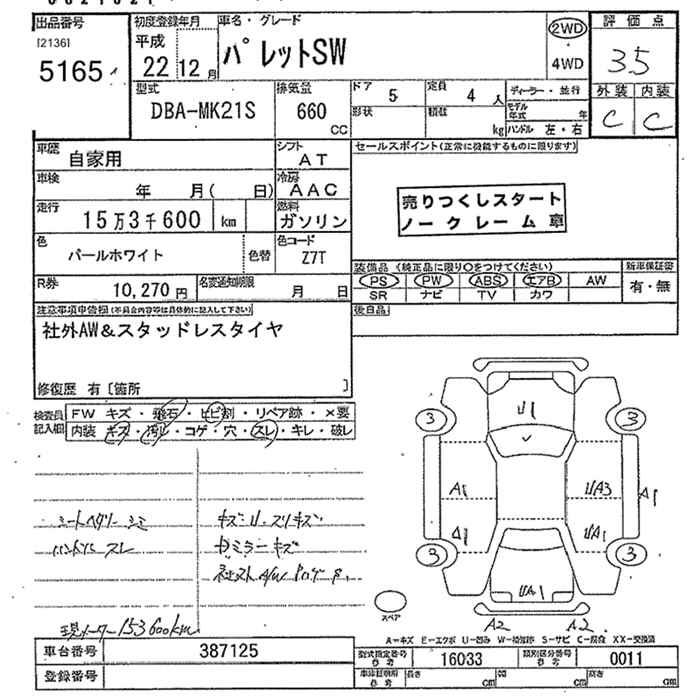 出品番号
[2136]
5165
初度登録年月
平成
22 12 月
車名・グレード
パレットSW
2WD
4WD
評価点
3.5
外装 内装
C C
型式
DBA-MK21S
排気量
660
CC
ドア
5
定員
4 人
形状
積載
kg
ディーラー・並行
モデル年式 年
ハンドル 左・右
車歴
自家用
シフト
AT
車検
年 月( 日)
冷房
AAC
走行
15万3千600 km
燃料
ガソリン
色
パールホワイト
色替
色コード
Z7T
R券
10,270 円
名変通知期限
月 日
セールスポイント(正常に機能するものに限ります)
売りつくしスタート
ノークレーム車
装備品 (純正品に限り○をつけてください)
PS PW ABS エアB AW
SR ナビ TV カワ
新車保証書
有・無
後日品
注意事項申告欄(不具合内容等は具体的に記入して下さい)
社外AW&スタッドレスタイヤ
修復歴 有〔箇所 〕
検査員記入欄
FW キズ・飛石・ヒビ割・リペア跡・×要
内装 キズ・汚れ・コゲ・穴・スレ・キレ・破レ
シートヘタリ シミ
ハンドル スレ
キズ・U・スリキズ
ミラーキズ
現メーター 153600km
3
3
3
3
U1
A1
UA3
A1
A1
UA1
UA1
A2
A2
スペア
A-キズ E-エクボ U-凹み W-補修跡 S-サビ C-腐食 XX-交換済
車台番号
387125
登録番号
型式指定番号
参考
16033
類別区分番号
参考
0011
車体証明用
参考
長さ cm
幅 cm
高さ cm